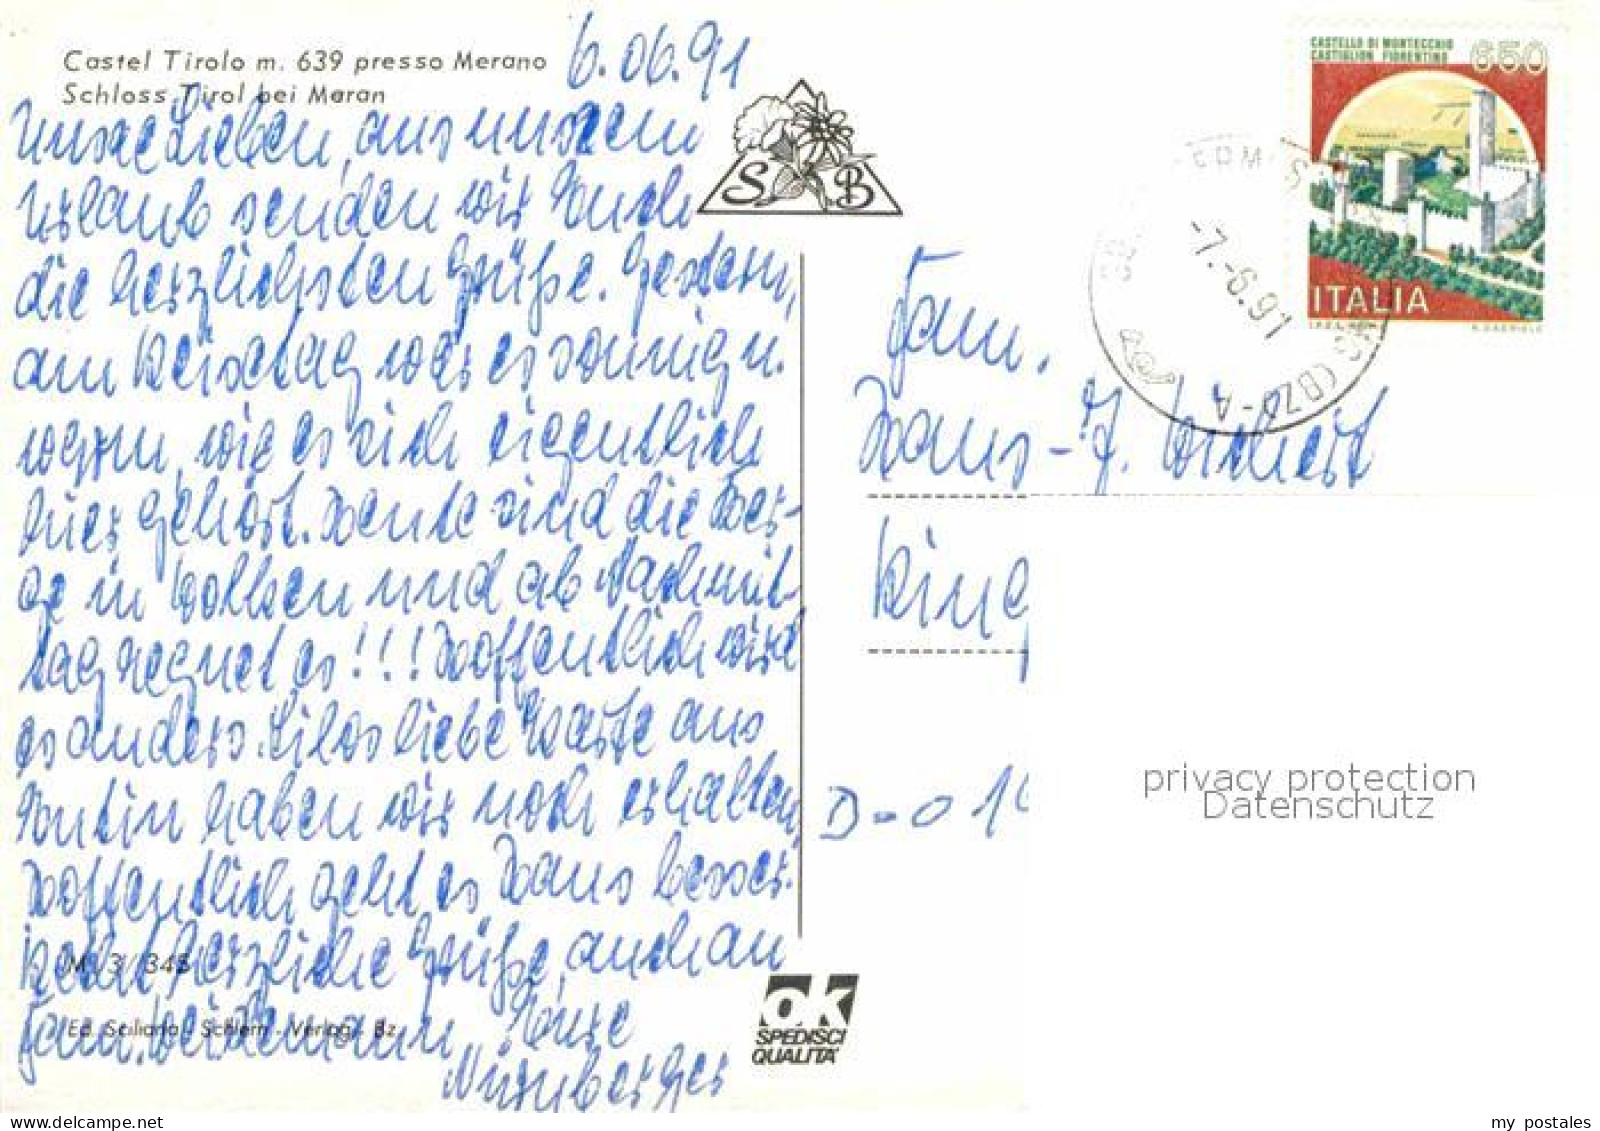 Castel Tirolo m. 639 presso Merano
Schloss Tirol bei Meran
6.06.91
Unsere Lieben, aus unserem
Urlaub senden wir Euch
die herzlichsten Grüße. Gestern,
am Reisetag war es sonnig u.
warm, wie es sich eigentlich
hier gehört. Heute sind die Ber-
ge in Wolken und ab Nachmit-
tag regnet es!!! Hoffentlich wird
es anders. Eure liebe Karte aus
haben wir noch erhalten,
Hoffentlich geht es Hans besser.
Recht herzliche Grüße, auch an
Fam. Weidemann Eure
Nürnberger
M 3/345
Ed. Siciliana - Schlern - Verlag - Bz
S B
OK
SPEDISCI
QUALITÀ
CASTELLO DI MONTECCHIO
CASTIGLION FIORENTINO
650
ITALIA
-7.-6.91
(BZ)-A
Fam.
Hans-J. Wichert
Ring
D-O 10
privacy protection
Datenschutz
my postales